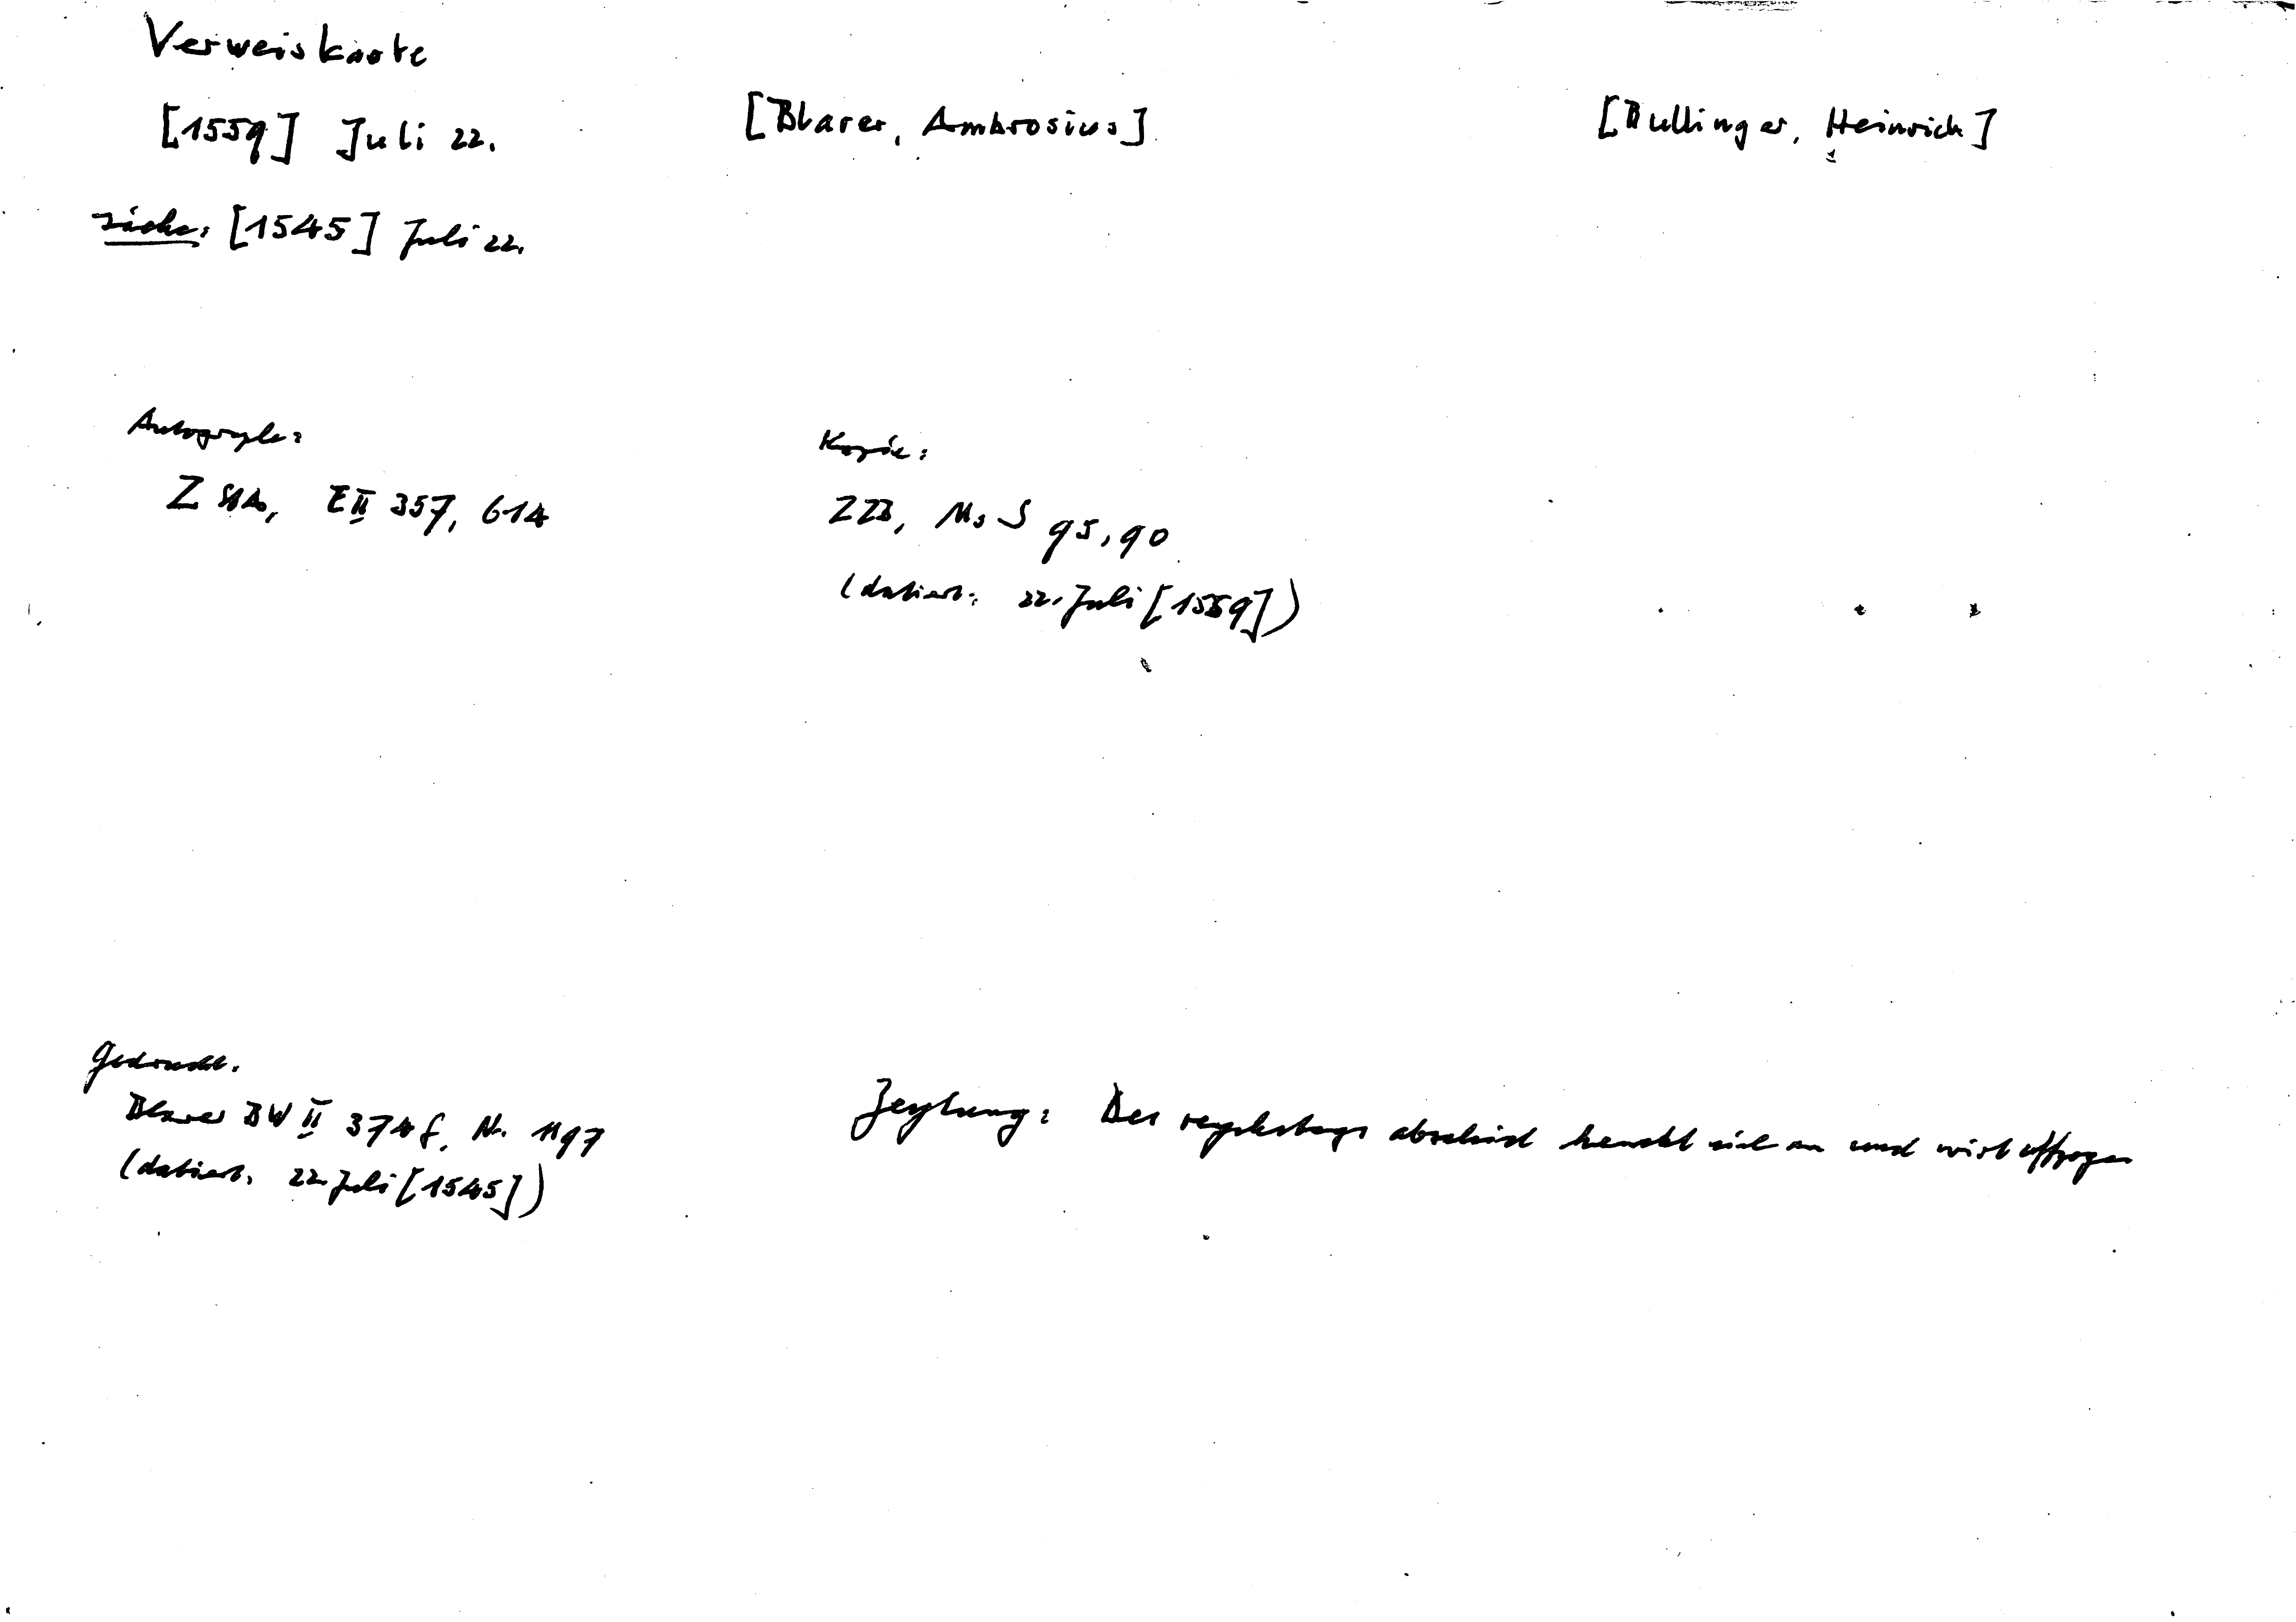 Verweiskarte
[1559] Juli 22.
[Blarer, Ambrosius]
[Bullinger, Heinrich]
siehe: [1545] Juli 22.
Autograph:
Z StA, E II 357, 614
Kopie:
ZZB, Ms S 95, 90
(datiert: 22. Juli [1559])
Gedruckt:
Blarer BW II 374 f, Nr. 1197
(datiert: 22. Juli [1545])
Zeytung: Der reychstags abschied henckt sich an und wirt uffzogen